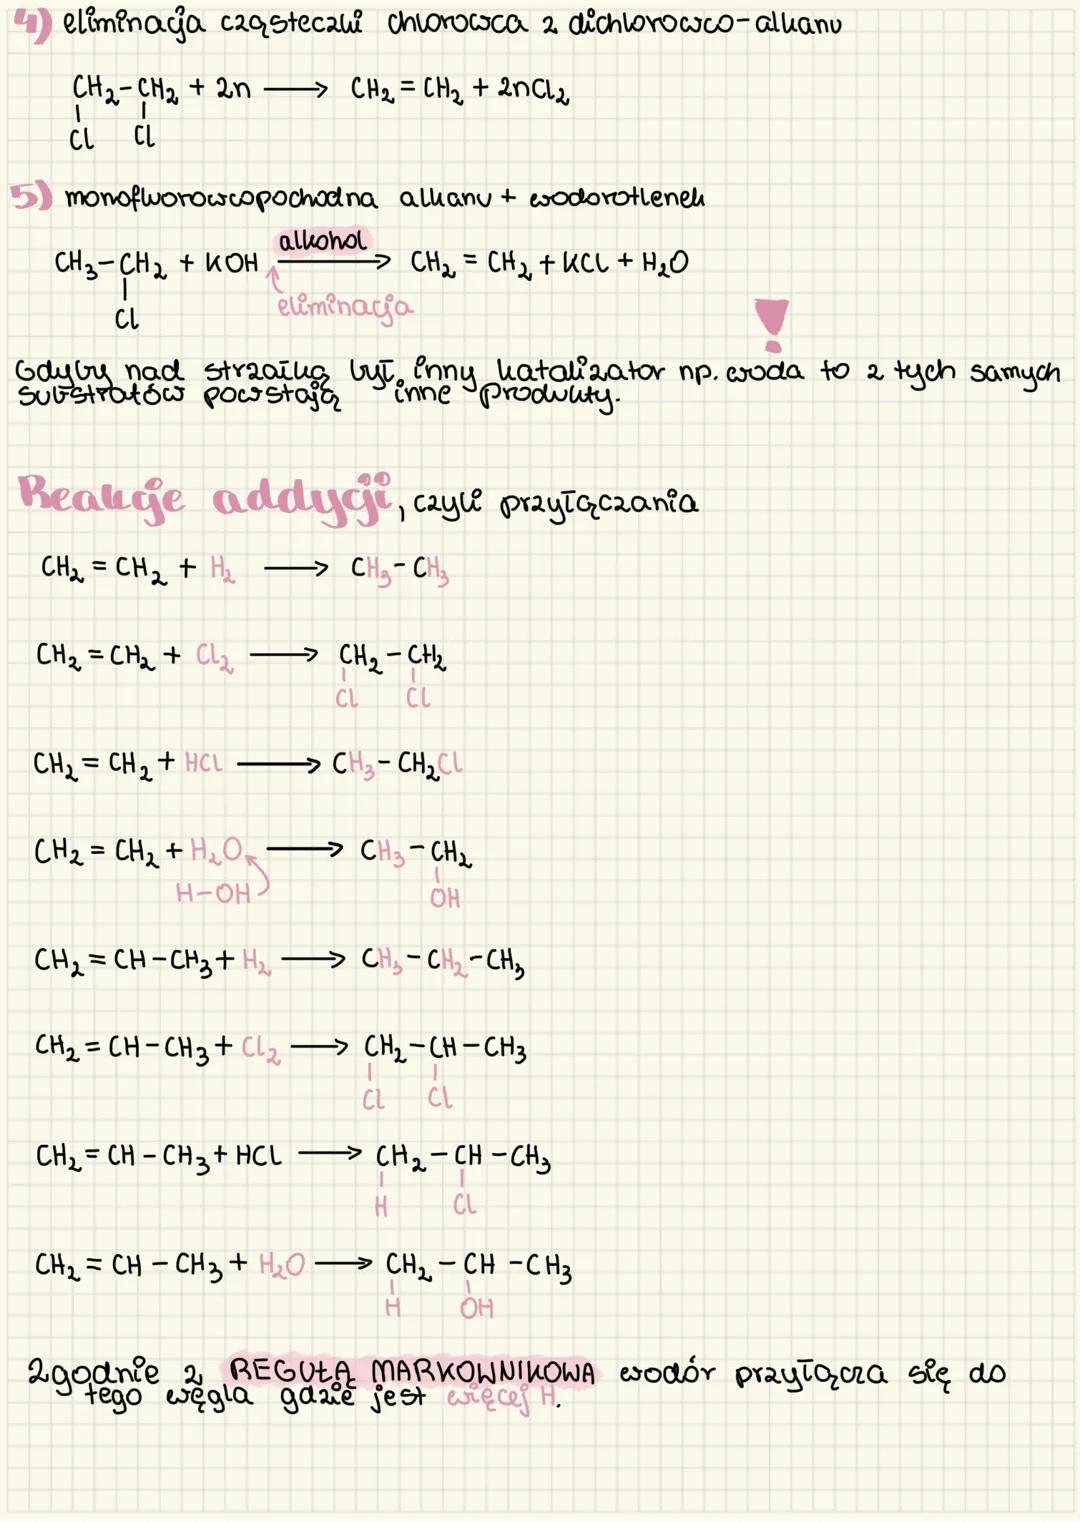 4) eliminacja cząsteczki chlorowca z dichlorowco-alkanu
CH₂-CH₂ + Zn ⟶ CH₂ = CH₂ + ZnCl₂
Cl Cl
5) monofluorowcopochodna alkanu + wodorotlenek
alkohol
CH₃-CH₂ + KOH ⟶ CH₂ = CH₂ + KCl + H₂O
Cl
eliminacja
!
Gdyby nad strzałką był inny katalizator np. woda to z tych samych
substratów powstają inne produkty.
Reakcje addycji, czyli przyłączania
CH₂ = CH₂ + H₂ ⟶ CH₃-CH₃
CH₂ = CH₂ + Cl₂ ⟶ CH₂-CH₂
Cl Cl
CH₂ = CH₂ + HCl ⟶ CH₃-CH₂Cl
CH₂ = CH₂ + H₂O ⟶ CH₃-CH₂
H-OH OH
CH₂ = CH-CH₃ + H₂ ⟶ CH₃-CH₂-CH₃
CH₂ = CH-CH₃ + Cl₂ ⟶ CH₂-CH-CH₃
Cl Cl
CH₂ = CH-CH₃ + HCl ⟶ CH₂-CH-CH₃
H Cl
CH₂ = CH-CH₃ + H₂O ⟶ CH₂-CH-CH₃
H OH
Zgodnie z REGUŁĄ MARKOWNIKOWA wodór przyłącza się do
tego węgla gdzie jest więcej H.